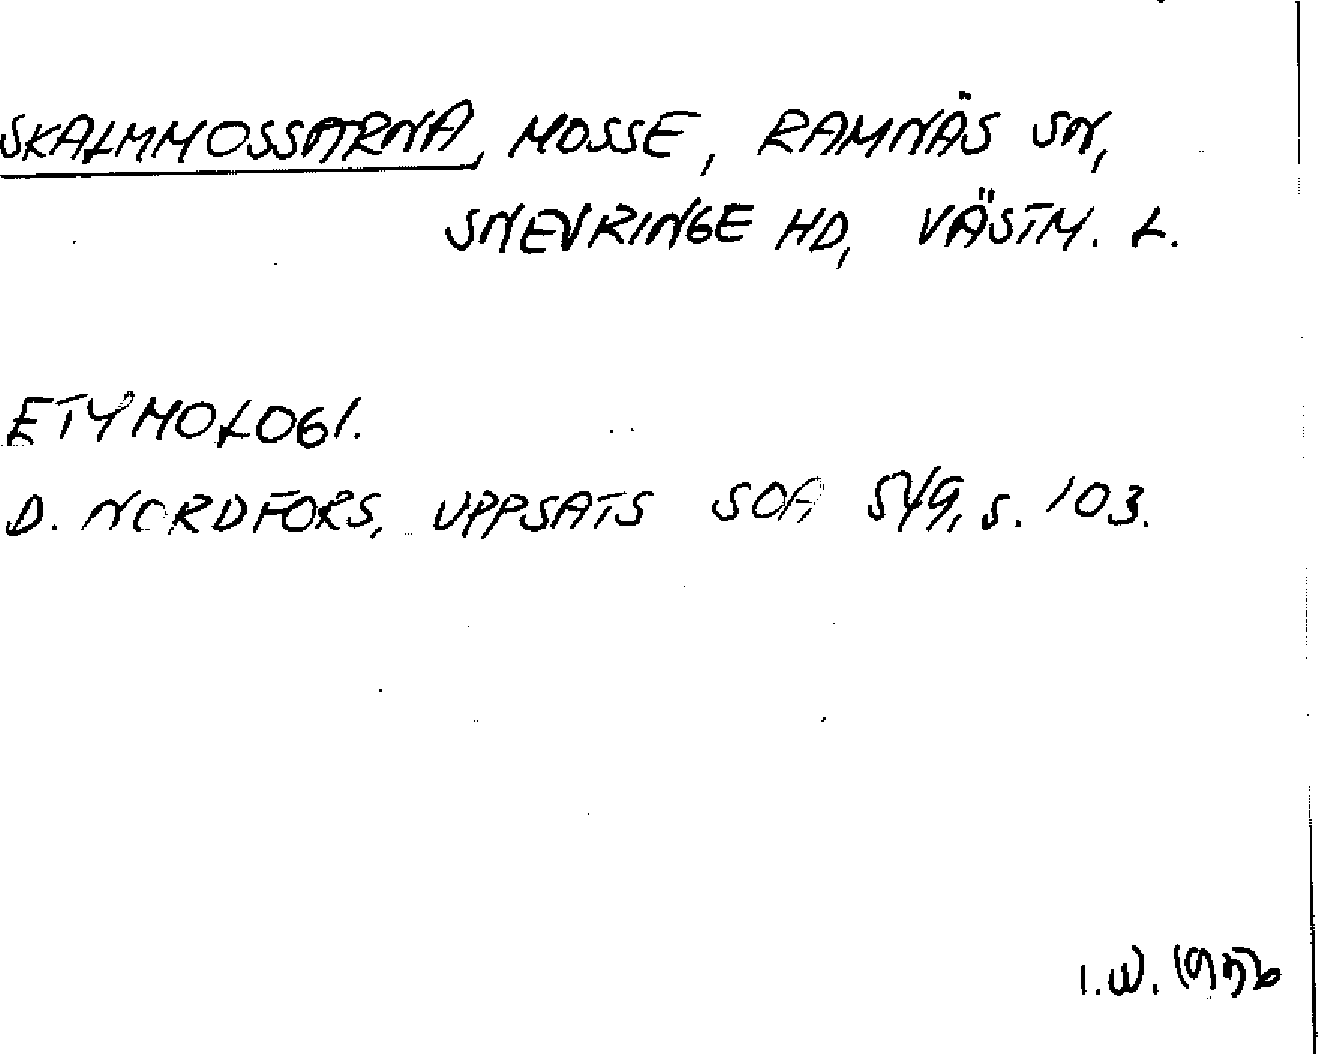 SKALMMOSSARNA, MOSSE, RAMNÄS SN,
SNEVRINGE HD, VÄSTM. L.
ETYMOLOGI.
D. NORDFORS, UPPSATS SOA 549, s. 103.
I.W.